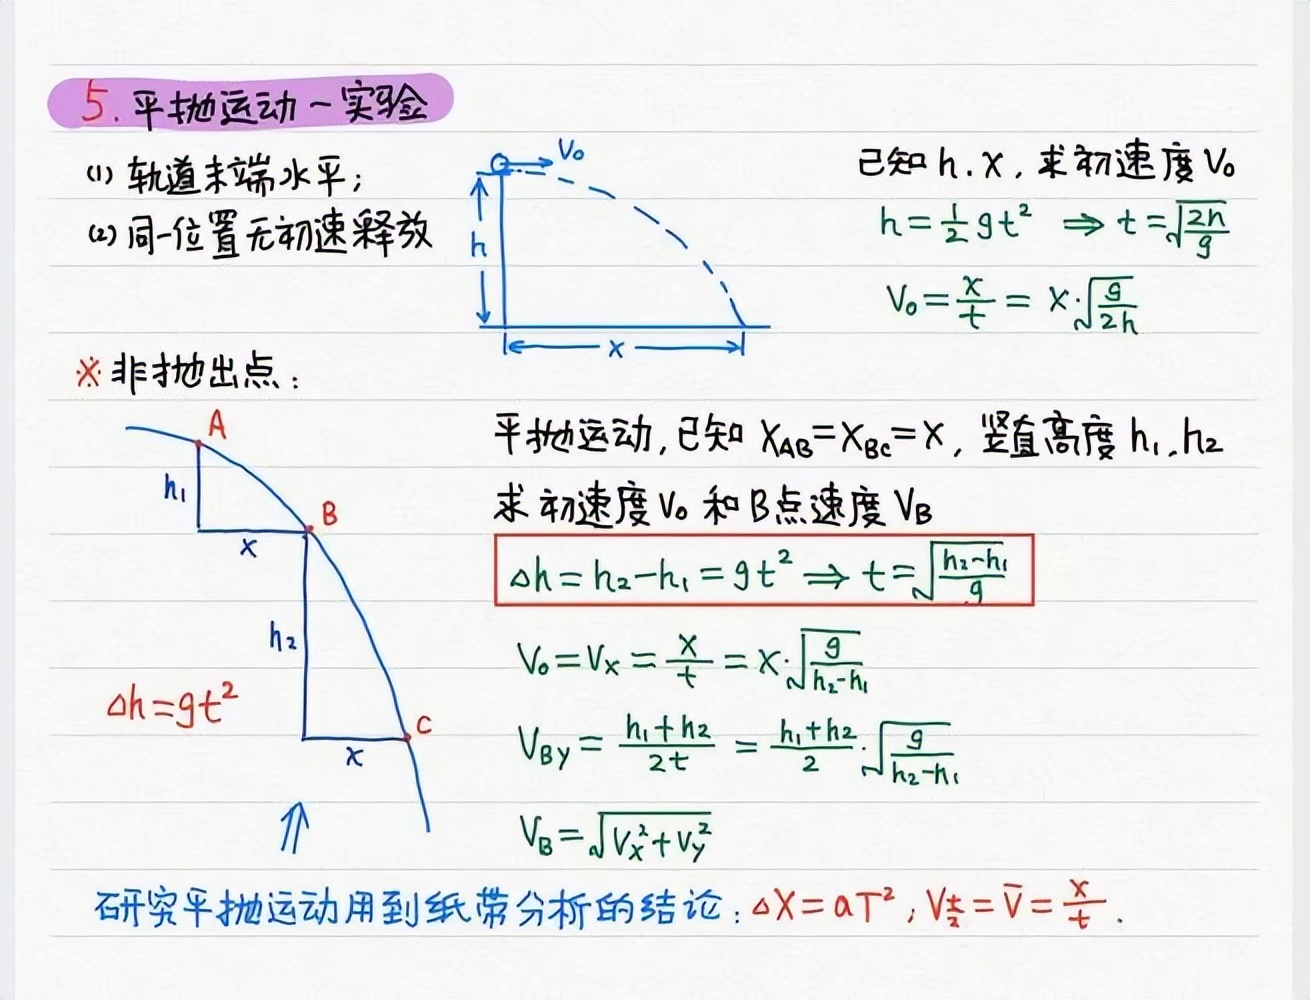 5. 平抛运动-实验
(1) 轨道末端水平；
(2) 同一位置无初速释放
V₀
h
x
已知 h. x, 求初速度 V₀
h = ½ g t² ⇒ t = √(2h/g)
V₀ = x/t = x·√(g/2h)
※ 非抛出点：
A
h₁
x
B
h₂
x
C
Δh = gt²
平抛运动, 已知 X_AB = X_BC = X, 竖直高度 h₁, h₂
求初速度 V₀ 和 B点速度 V_B
Δh = h₂ - h₁ = g t² ⇒ t = √((h₂-h₁)/g)
V₀ = V_X = X/t = X·√(g/(h₂-h₁))
V_BY = (h₁+h₂)/2t = (h₁+h₂)/2 · √(g/(h₂-h₁))
V_B = √(V_X² + V_y²)
研究平抛运动用到纸带分析的结论：ΔX = aT², V_(t/2) = V̄ = x/t.